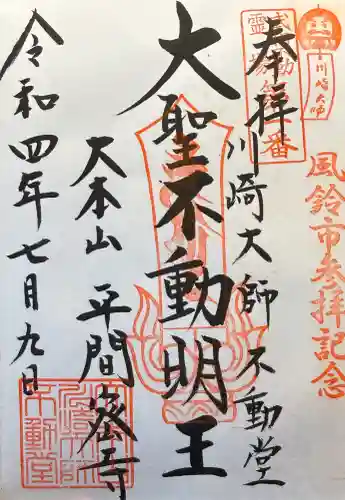 川崎大師
風鈴市参拝記念
武動第番
霊場
奉拝
川崎大師 不動堂
大聖不動明王
大本山 平間寺
令和四年七月九日
不動堂